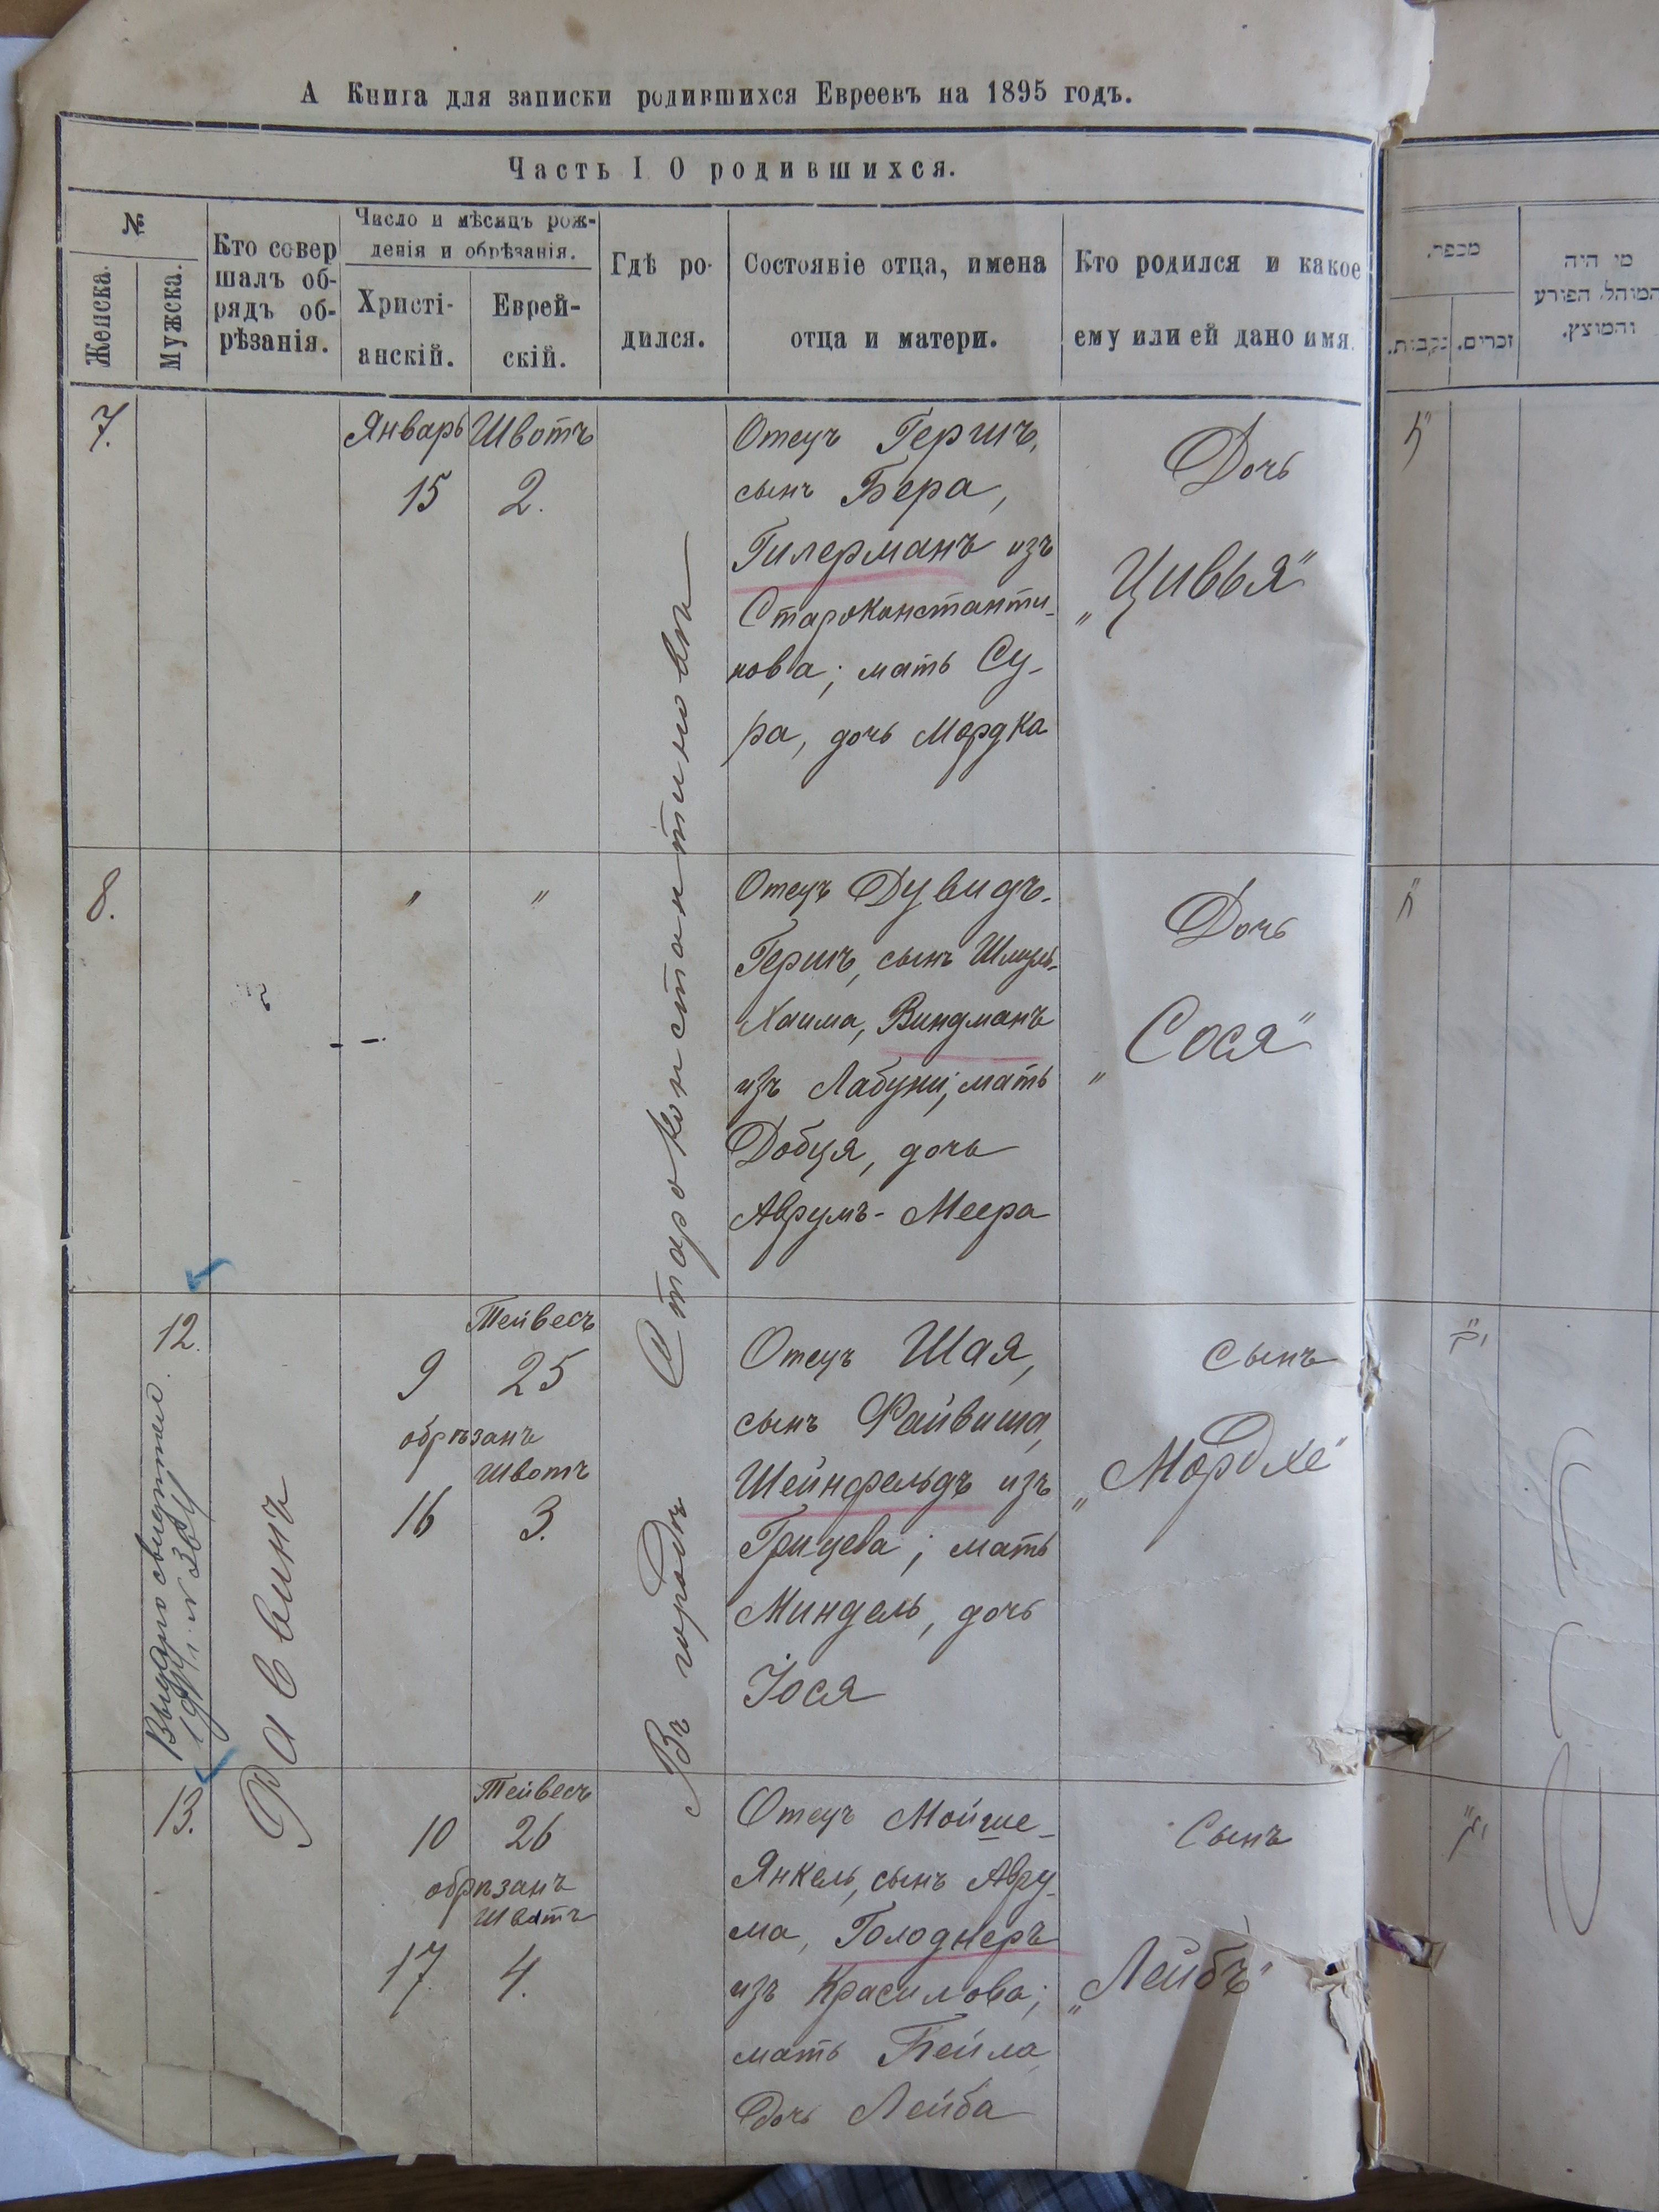 А Книга для записки родившихся Евреевъ на 1895 годъ.
Часть I О родившихся.
№
Женска.
Мужска.
Кто совер
шалъ об-
рядъ об-
рѣзанія.
Число и мѣсяцъ рож-
денія и обрѣзанія.
Христі-
анскій.
Еврей-
скій.
Гдѣ ро-
дился.
Состояніе отца, имена
отца и матери.
Кто родился и какое
ему или ей дано имя.
מספר.
נקבות.
זכרים.
מי היה
המוהל הפורע
והמוצץ.
7.
Январь
15
Швотъ
2.
Отецъ Гершъ,
сынъ Бера,
Гилерманъ изъ
Староконстанти-
нова; мать Су-
ра, дочь Мордка
Дочь
„Цивья"
ז"
8.
"
"
Отецъ Дувидъ-
Гершъ, сынъ Шмуль-
Хаима, Виндманъ
изъ Лабуни; мать
Добця, дочь
Аврумъ-Меера
Дочь
„Сося"
ח"
Въ городѣ Староконстантиновѣ
Равинъ
12.
Выдано свидѣтел.
Тейвесъ
9
25
обрѣзанъ
Швотъ
16
3.
Отецъ Шая,
сынъ Файвиша,
Шейнфельдъ изъ
Грицева; мать
Миндель, дочь
Іося
Сынъ
„Мордхе"
י"ב
13.
Тейвесъ
10
26
обрѣзанъ
Швотъ
17
4.
Отецъ Мойше-
Янкель, сынъ Авру-
ма, Голоднеръ
изъ Красилова;
мать Бейла
дочь Лейба
Сынъ
„Лейбъ"
י"ג